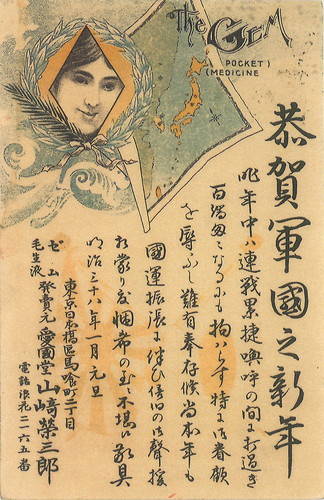 The GEM
POCKET
(MEDICINE
恭賀軍國之新年
昨年中ハ連戦累捷喚呼の間に打過き
百端多忙なるにも拘ハらす特に御眷顧
を辱ふし難有奉存候尚本年も
國運振張に伴ひ倍旧の御聲援
を蒙り度悃希の至に不堪候敬具
明治三十八年一月元旦
東京日本橋區馬喰町二丁目
ゼム
毛生液
発賣元 愛國堂 山﨑榮三郎
電話浪花二一六五番